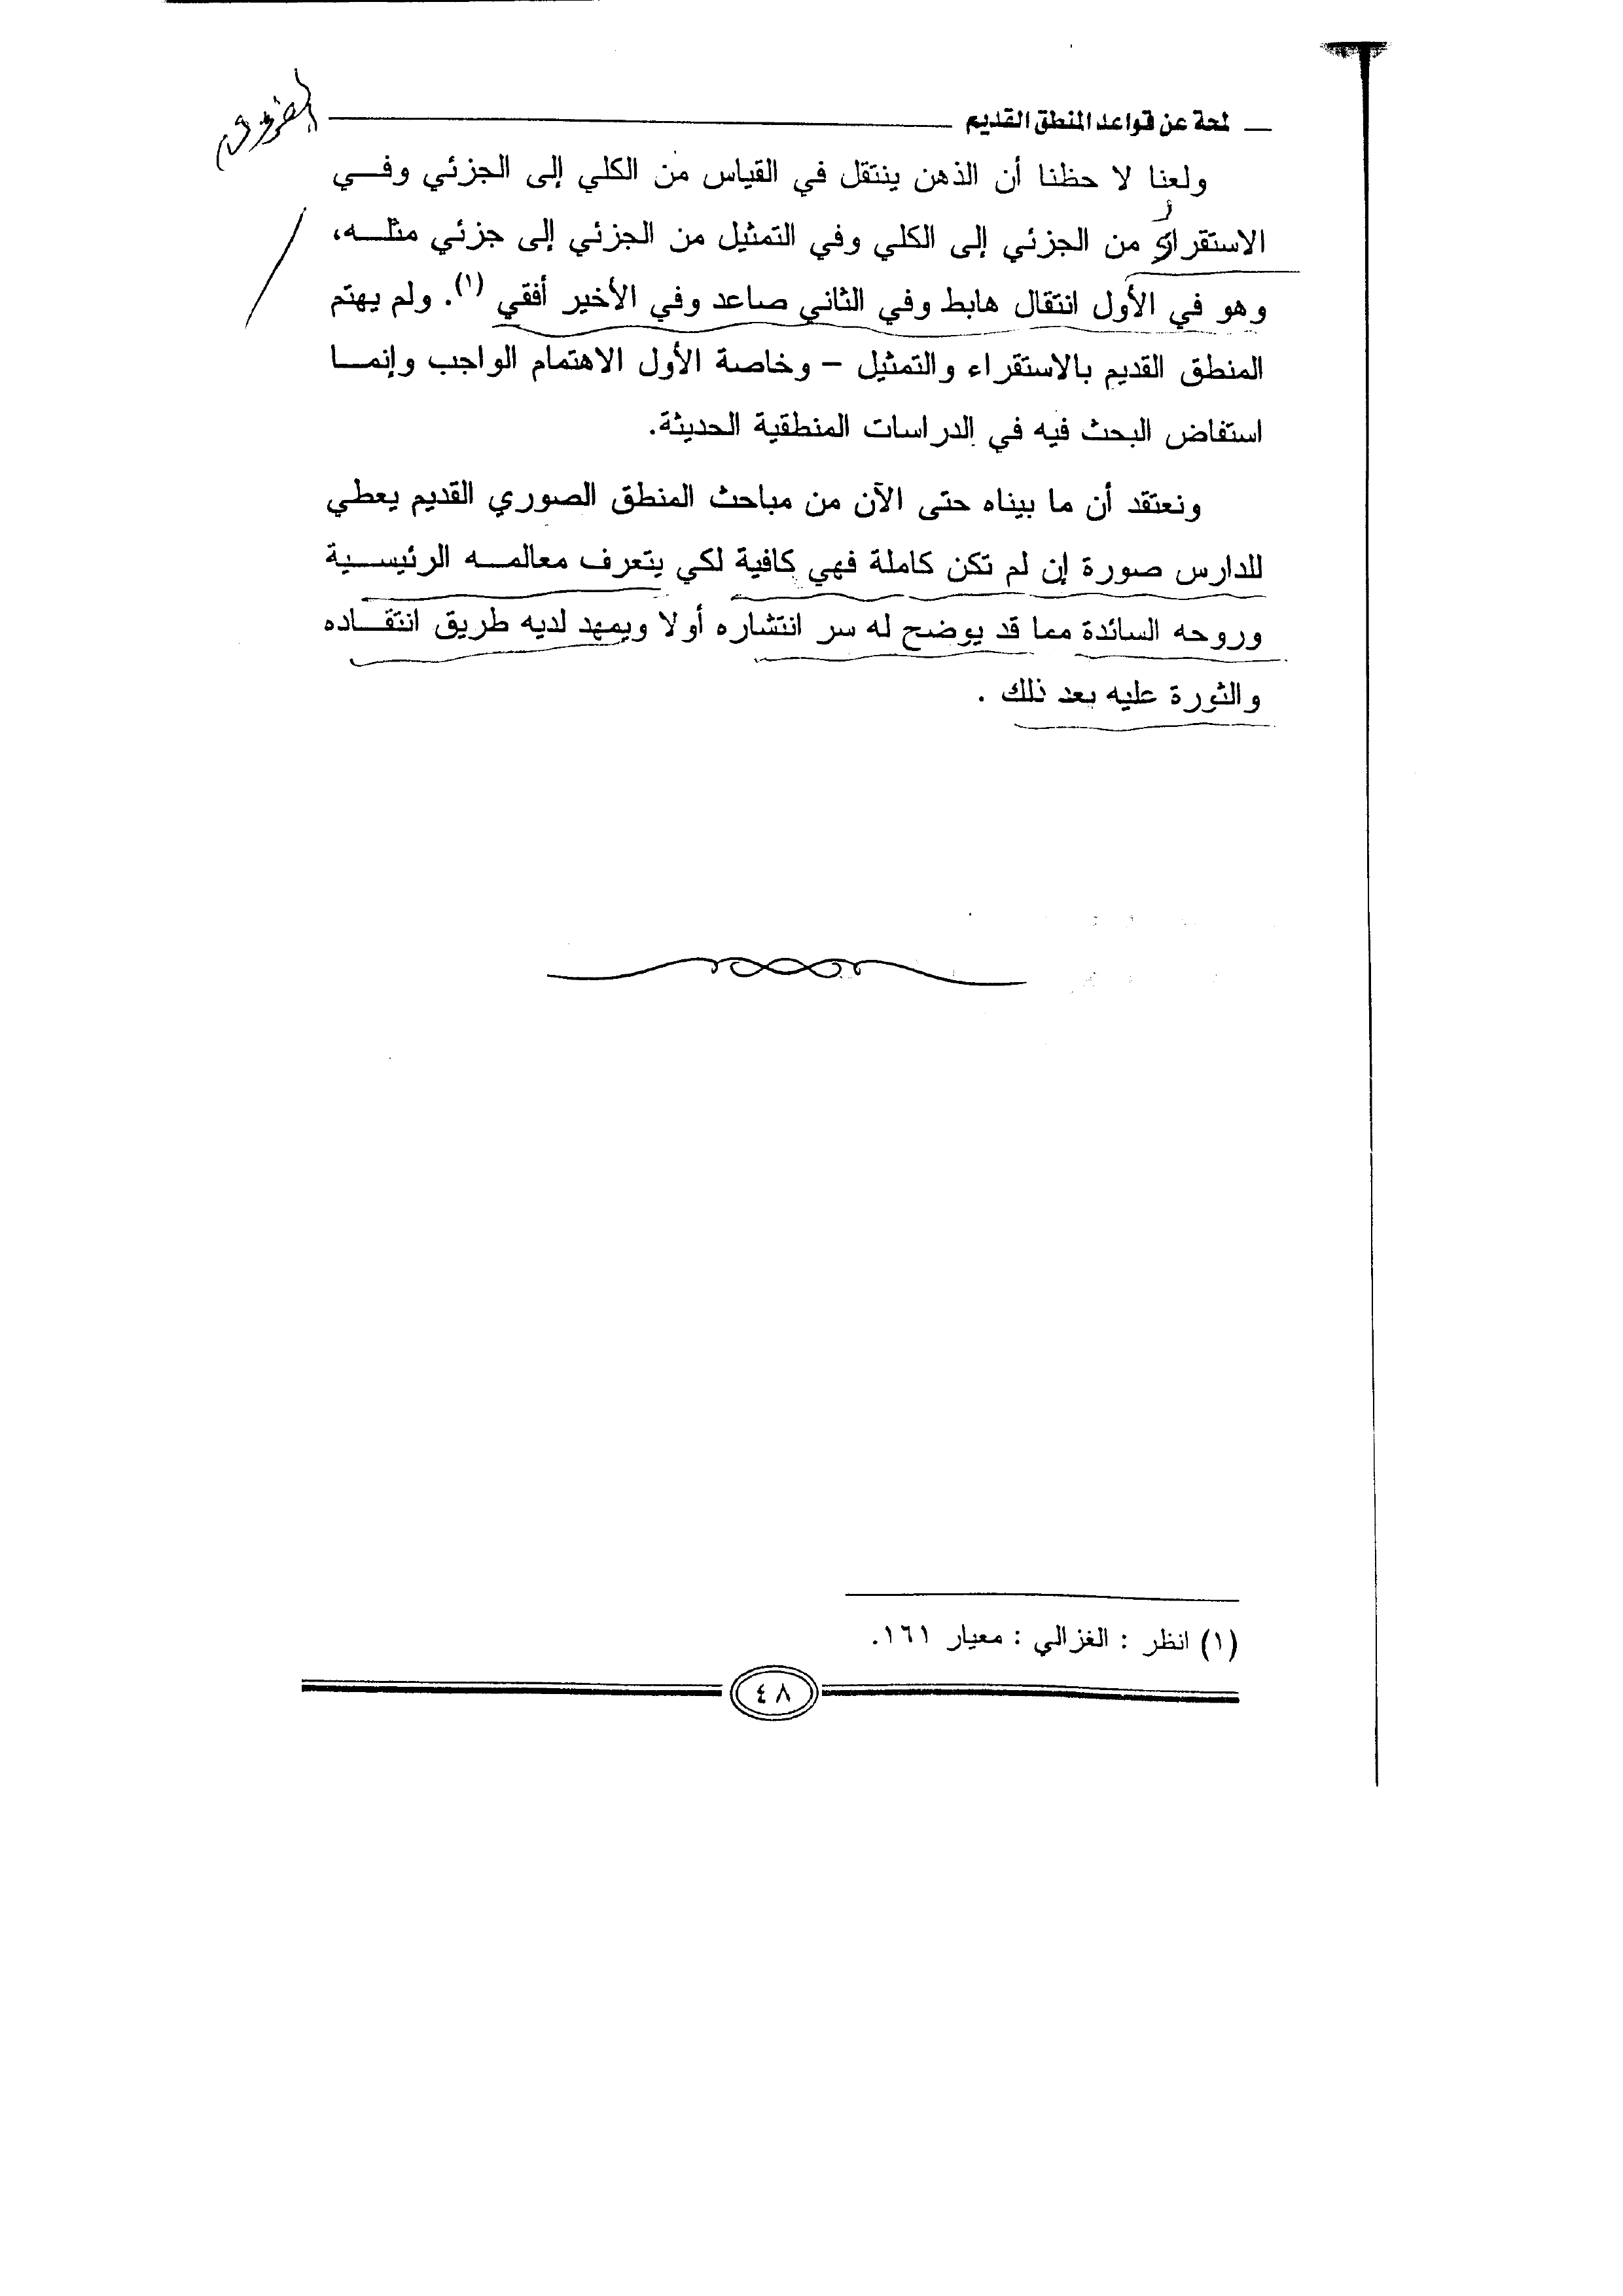 لمحة عن قواعد المنطق القديم
الفروق
ولعنا لا حظنا أن الذهن ينتقل في القياس من الكلي إلى الجزئي وفي
الاستقراء من الجزئي إلى الكلي وفي التمثيل من الجزئي إلى جزئي مثله،
وهو في الأول انتقال هابط وفي الثاني صاعد وفي الأخير أفقي (١). ولم يهتم
المنطق القديم بالاستقراء والتمثيل – وخاصة الأول الاهتمام الواجب وإنما
استفاض البحث فيه في الدراسات المنطقية الحديثة.
ونعتقد أن ما بيناه حتى الآن من مباحث المنطق الصوري القديم يعطي
للدارس صورة إن لم تكن كاملة فهي كافية لكي يتعرف معالمه الرئيسية
وروحه السائدة مما قد يوضح له سر انتشاره أولا ويمهد لديه طريق انتقاده
والثورة عليه بعد ذلك .
(١) انظر : الغزالي : معيار ١٦١.
٤٨